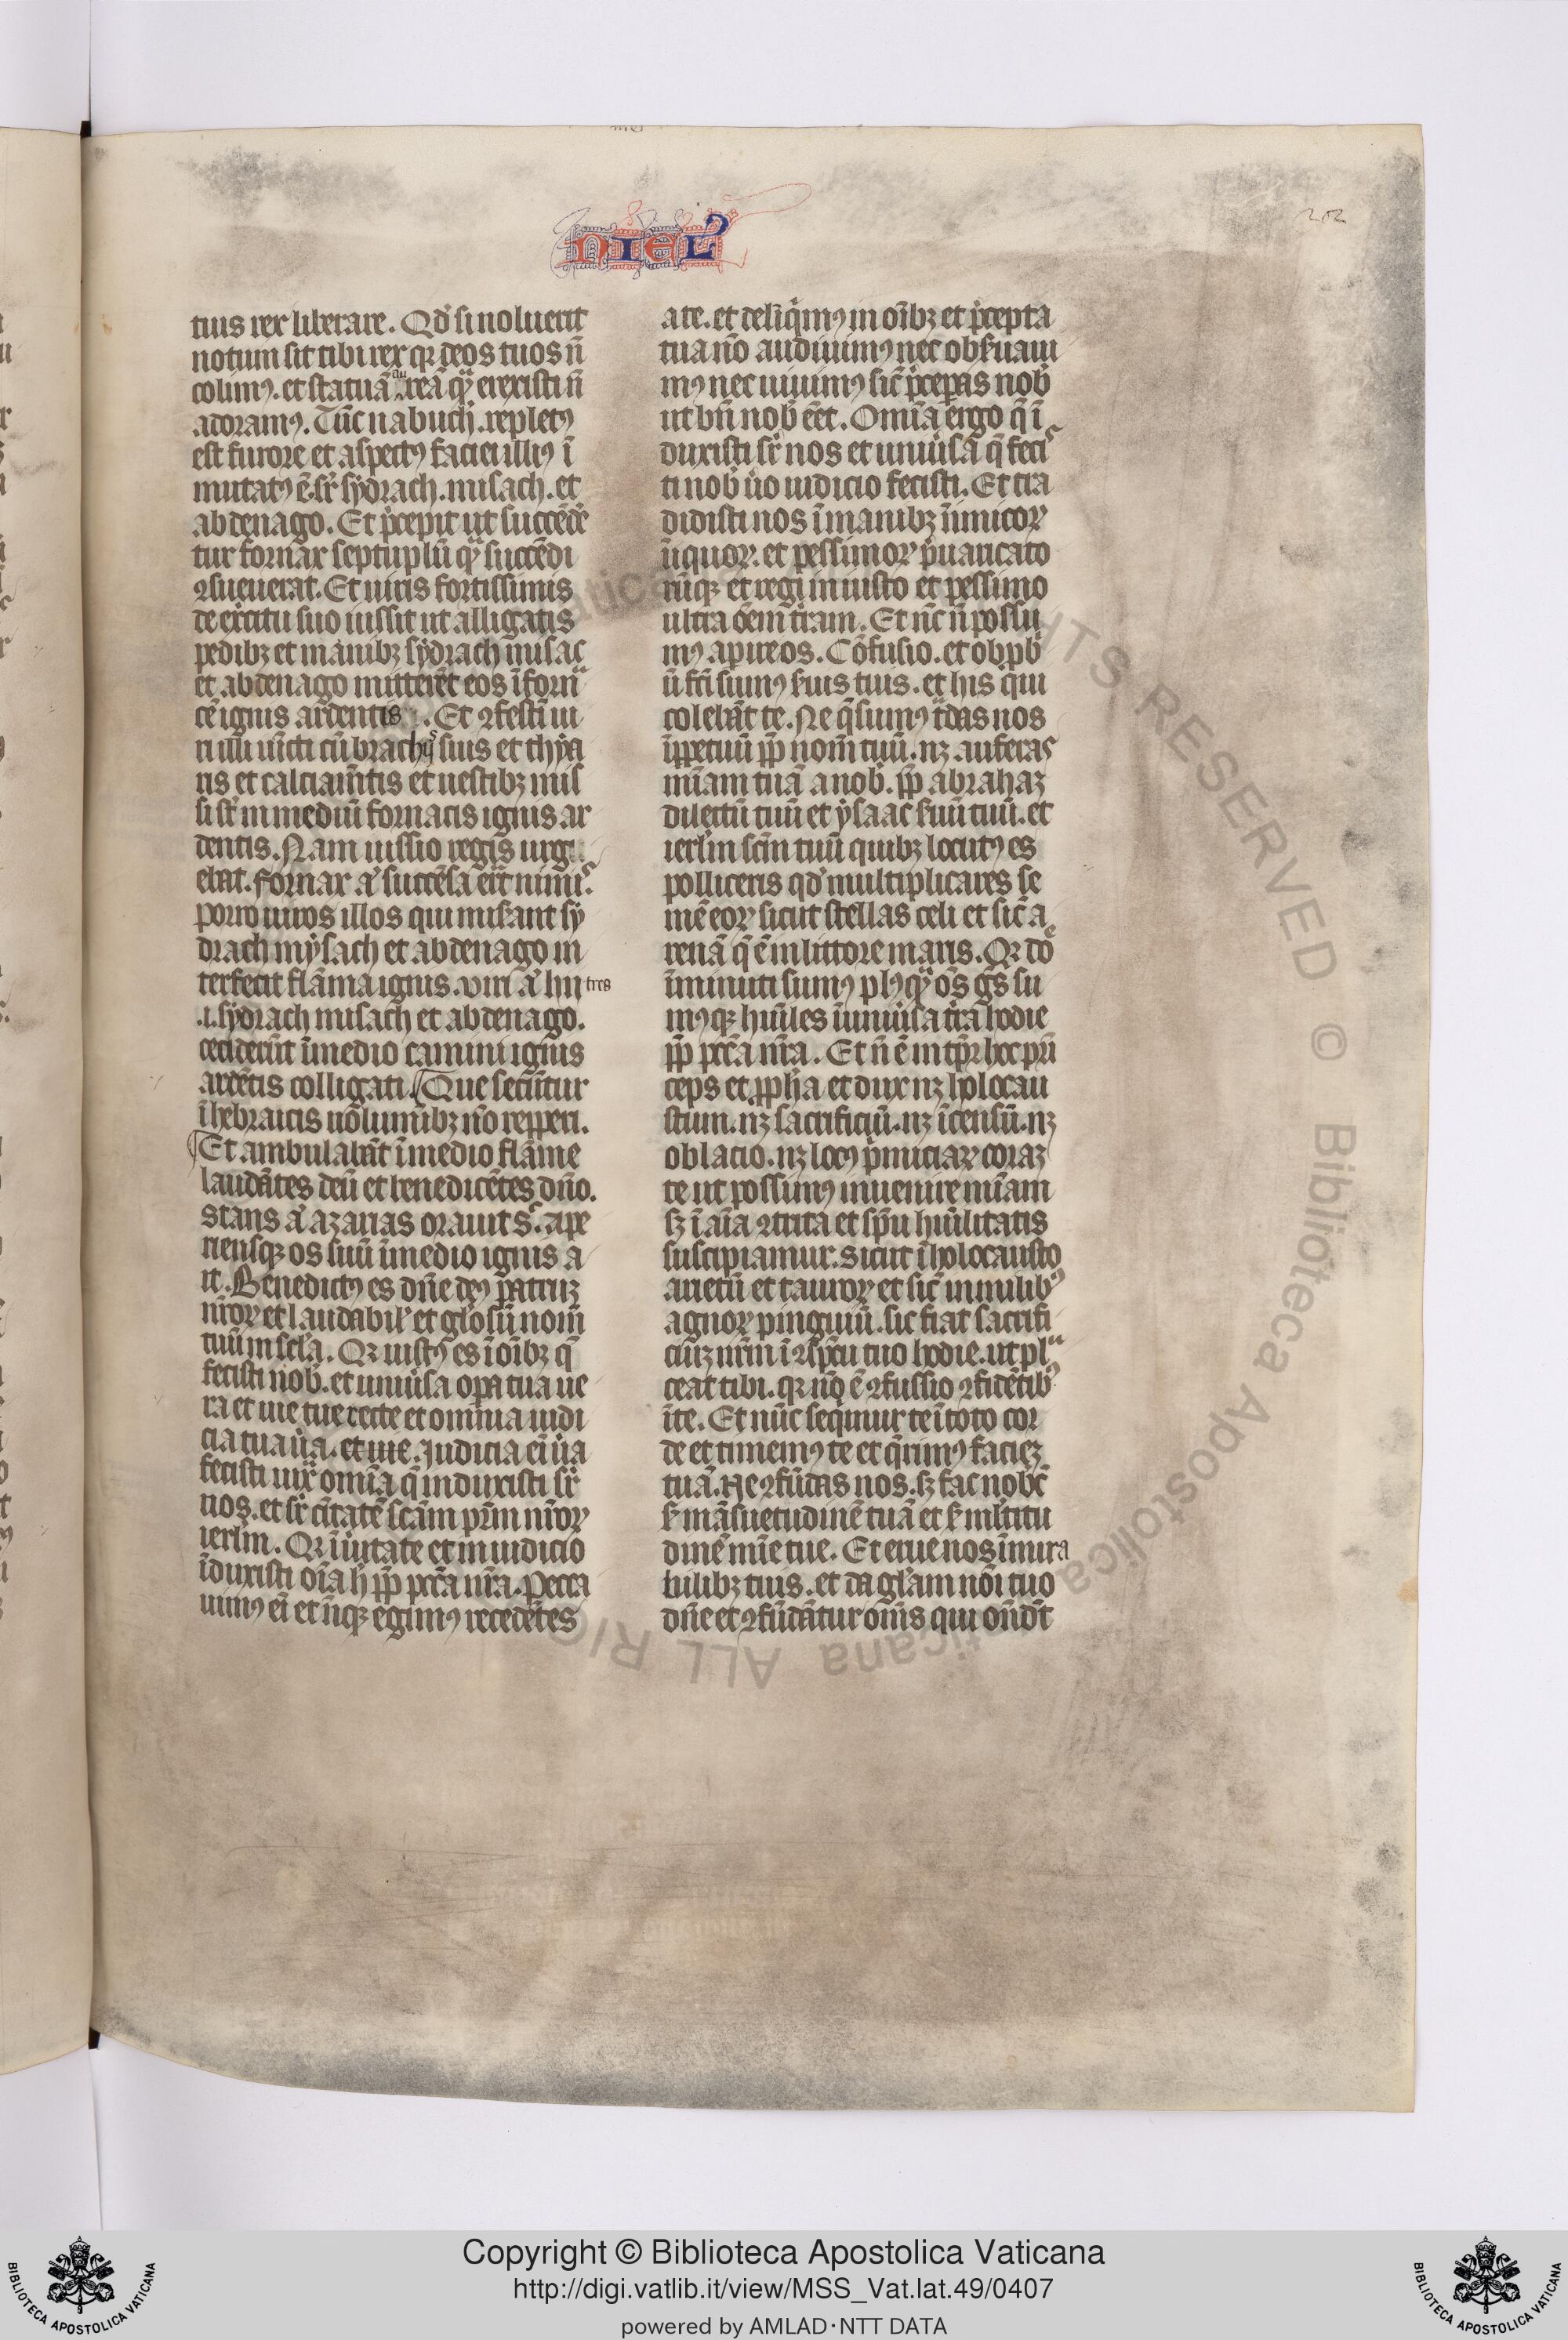 NIEL
202
tuis rex liberare. Qd̕ si noluerit
notum sit tibi rex qꝛ deos tuos n̄
colimꝰ. et statuā aureā quā erexisti n̄
adoramꝰ. Tūc nabuch̕. repletꝰ
est furore et aspectꝰ faciei illiꝰ ī
mutatꝰ ē. sr̄ sydrach. misach. et
abdenago. Et p̄cepit ut succēde
tur fornax septuplū quā succēdi
ꝯsueuerat. Et uiris fortissimis
de ex̄citu suo iussit ut alligatis
pedibꝫ et manibꝫ sydrach misac
et abdenago mitterēt eos ī forna
cē ignis ardentis. Et ꝯfestī ui
ri illi uīcti cū brachys suis et thya
ris et calciamītis et uestibꝫ mis
si sūt in mediū fornacis ignis ar
dentis. Nam iussio regis urg
ebat. fornax aūt succēsa erat nimis.
porro uiros illos qui miserant sy
drach mysach et abdenago in
terfecit flāma ignis. viri aūt hii tres
.i. sydrach misach et abdenago.
ceciderūt ī medio camini ignis
ardētis colligati. Que secūtur
ī hebraicis uolumībꝫ nō repperi.
Et ambulabāt ī medio flāme
laudātes deū et benedicētes dn̄o.
stans aūt azarias orauit sic. ape
riensqꝫ os suū ī medio ignis a
it. Benedictꝰ es dn̄e deꝰ patrū
nr̄oꝝ et laudabil̕ et gl̕osū nom̄
tuū in scl̕a. Qꝛ iustꝰ es ī oībꝫ q̄
fecisti nob̕. et uniūsa oꝑa tua ue
ra et uie tue recte et omnia iudi
cia tua ūa. et uie. Judicia eī ūa
fecisti iuxᵃ omīa q̄ induxisti sr̄
nos. et sr̄ ciuitatē scām pr̄m nr̄oꝝ
ierl̕m. Qꝛ ī ūitate et in iudicio
īduxisti oīa h̄ ꝓp̄ pccā nr̄a. Pecca
uimꝰ eī et īiqꝫ egimꝰ recedētes
a te. et deliqⁱmꝰ in oībꝫ et p̄cepta
tua nō audiuimꝰ nec obẞuaui
mꝰ nec uiuimꝰ sic̄ p̄cepas nob̕
ut bn̄ nob̕ eēt. Omīa ergo q̄ ī
duxisti sr̄ nos et uniūsa q̄ fecis
ti nob̕ ūo iudicio fecisti. Et tra
didisti nos ī manibꝫ inimicoꝝ
īiquoꝝ. et pessimoꝝ p̄uaricato
rūqꝫ et regi iniusto et pessimo
ultra oēm t̄ram. Et nūc n̄ possu
mꝰ aꝑire os. Cōfusio. et obꝓb
ū fcī sumꝰ ẞuis tuis. et his qui
colebāt te. Ne q̄sumꝰ tᵃdas nos
īꝑpetuū ꝓp̄ nom̄ tuū. nꝫ auferas
mīam tuā a nob̕. ꝓp̄ abrahaꝫ
dilectū tuū et ysaac ẞuū tuū. et
ierl̕m scm̄ tuū quibꝫ locutꝰ es
pollicens qd̕ multiplicares se
mē eoꝝ sicut stellas celi et sic̄ a
renā q̄ ē in littore maris. Qꝛ dn̄e
īminuti sumꝰ plꝰ quā om̄s gētes su
mꝰqꝫ huīles ī uniūsa t̄ra hodie
ꝓp̄ pccā nr̄a. Et n̄ ē in tp̄r hoc pn̄
ceps et ꝓph̄a et dux nꝫ holocau
stum. nꝫ sacrificiū. nꝫ īcensū. nꝫ
oblacio. nꝫ locꝰ p̄miciaꝝ coraꝫ
te ut possimꝰ inuenire mīam
sꝫ ī aīa ꝯtrita et sp̄u huīlitatis
suscipiamur. Sicut ī holocausto
arietū et tauroꝝ et sic̄ in milibꝰ
agnoꝝ pinguiū. sic fiat sacrifi
ciūꝫ nr̄m ī ꝯsp̄cu tuo hodie. ut pla
ceat tibi. qꝛ nō ē ꝯfussio ꝯfidētibꝰ
ī te. Et nūc seqⁱmur te ī toto cor
de et timemꝰ te et q̄rimꝰ facieꝫ
tuā. Ne ꝯfūdas nos. sꝫ fac nobc̄
ẞ māsuetudinē tuā et ẞ ml̕titu
dinē mīe tue. Et erue nos ī mira
bilibꝫ tuis. et da gl̕am nōi tuo
dn̄e et ꝯfūdātur om̄s qui on̄dūt
Copyright © Biblioteca Apostolica Vaticana
http://digi.vatlib.it/view/MSS_Vat.lat.49/0407
powered by AMLAD·NTT DATA